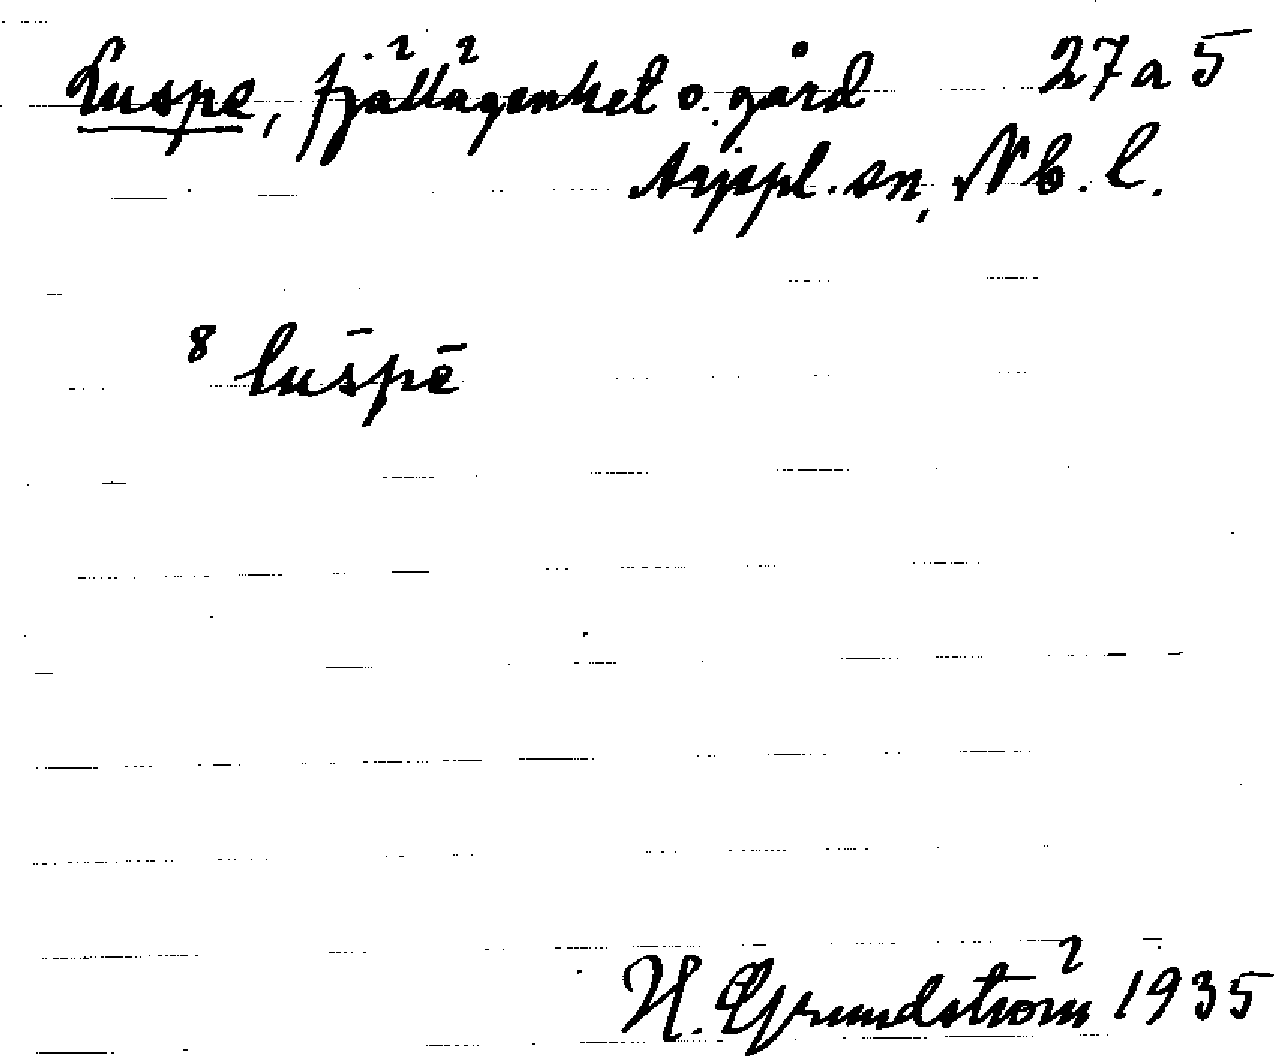 Luspe, fjällägenhet o. gård 27a5
Arjepl. sn, Nb. l.
8 luspē
H. Grundström 1935